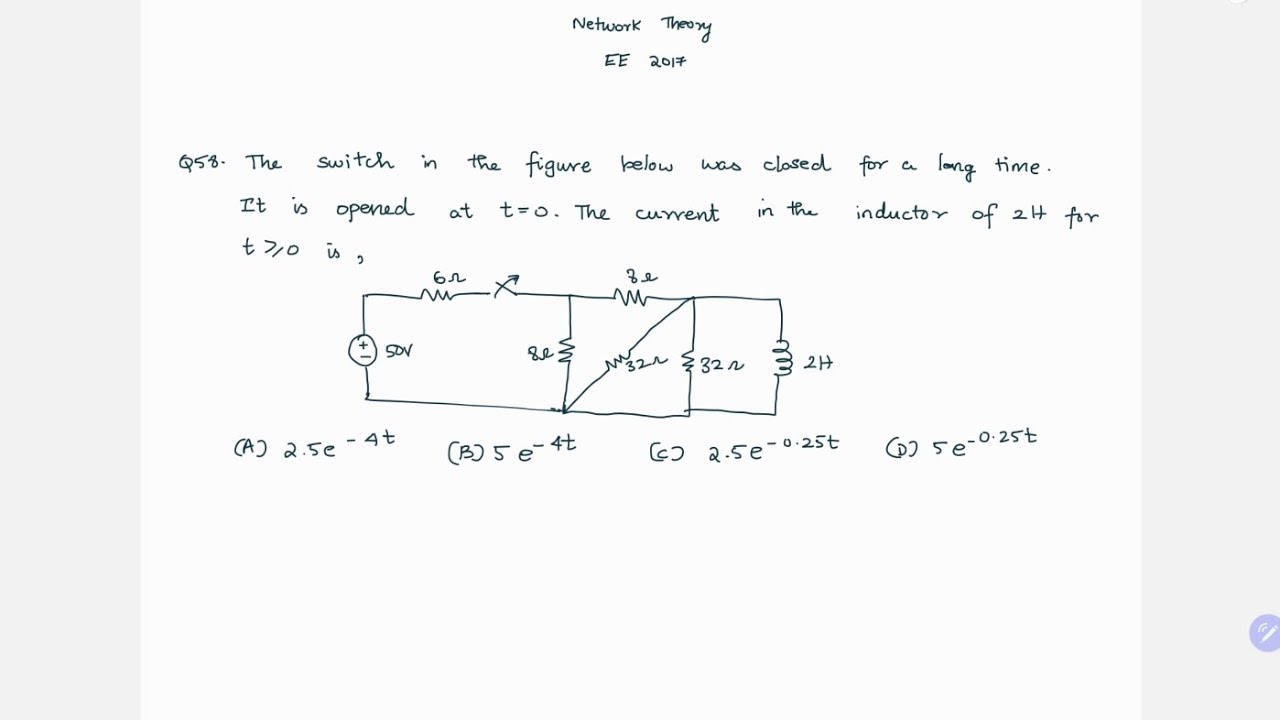 Network Theory
EE 2017
Q58. The switch in the figure below was closed for a long time.
It is opened at t=0. The current in the inductor of 2H for
t⩾0 is,
6Ω
8Ω
50V
8Ω
32Ω
32Ω
2H
(A) 2.5e^{-4t} (B) 5e^{-4t} (C) 2.5e^{-0.25t} (D) 5e^{-0.25t}